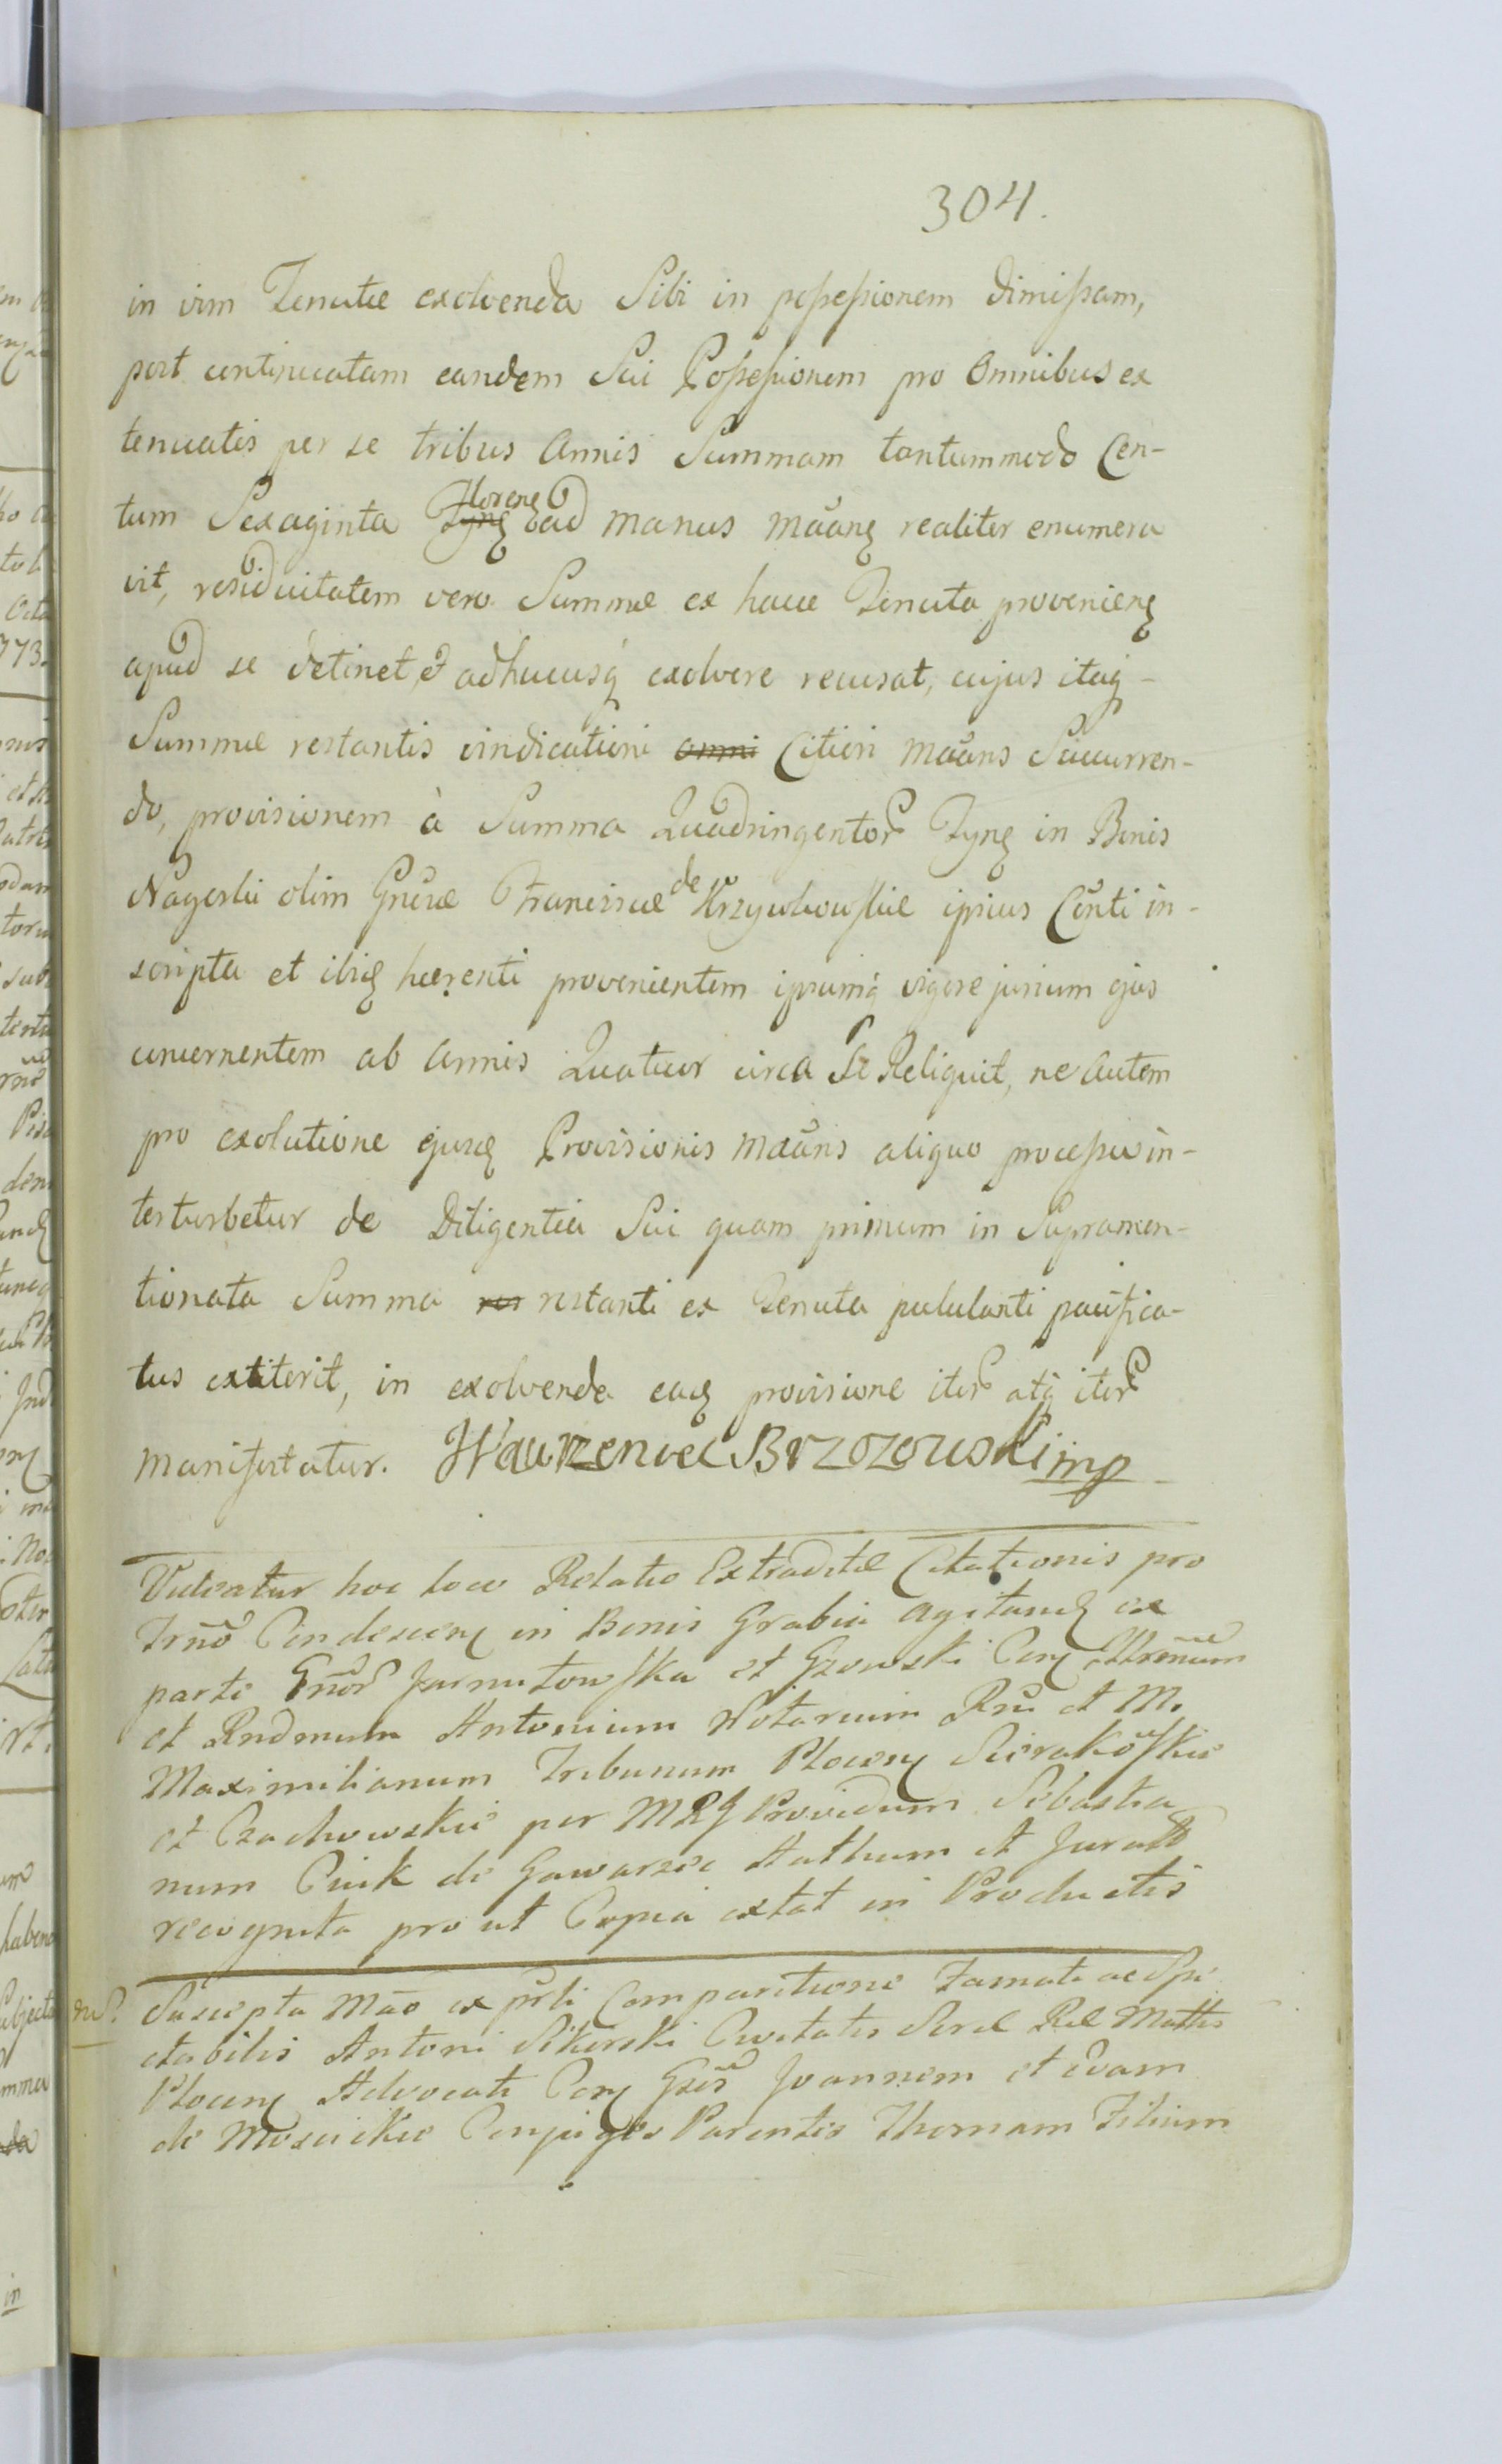 304.
in vim Tenutæ exolvenda Sibi in possessionem dimissam,
post continuatam eandem Sui Possessionem pro Omnibus ex
tenuatis per se tribus Annis Summam tantummodo Cen-
tum Sexaginta Floreng ad manus mããng realiter enumera
vit, residuitatem vero Summæ ex hacce Tenuta provenieng
apud se detinet, & adhucusq exolvere recusat, cujus itaq -
Summæ restantis vindicationi omni Citiori mããns Succurren-
do, provisionem à Summa Quadringentor Tyng in Bonis
Nagorki olim Gnẽræ Franciscæ de Krzywkowskie ipsius Cõnti in-
scripta et ibiq hærenti provenientem ipsumq vigore jurium ejus
concernentem ab Annis Quatuor circa Se Reliquit, ne autem
pro exolutione ejusq Provisionis mããns aliquo processu in-
terturbetur de Diligentia Sui quam primum in Supramen-
tionata Summa res restanti ex Tenuta pululanti pacifica-
tus extiterit, in exolvenda eaq provisione iter atq iter
manifestatur. Wawrzeniec Brzozowski mp
Videatur hoc loco Relatio Extraditæ Citationis pro
Trnõ Condescen in Bonis Grabia agitand ex
parte Gnõr Jarnutowska et Gzowski Con Illrmum
et Rndmum Antonium Notarium Rni et M.
Maximilianum Tribunum Plocen Sierakowskie
et Czachowskie per MRG Providum Sebastia
num Cwik de Gawarzec Authum et Juratt
recognita pro ut Copia extat in Productis
Suscepta Mão ex prli Comparitione Famati ac Spe
ctabilis Antoni Sikorski Civitatis Seræ Ræ Mattis
Plocen Advocati Con Gzer Joannem et Evam
de Moscickie Conjuges Parentes Thomam Filium